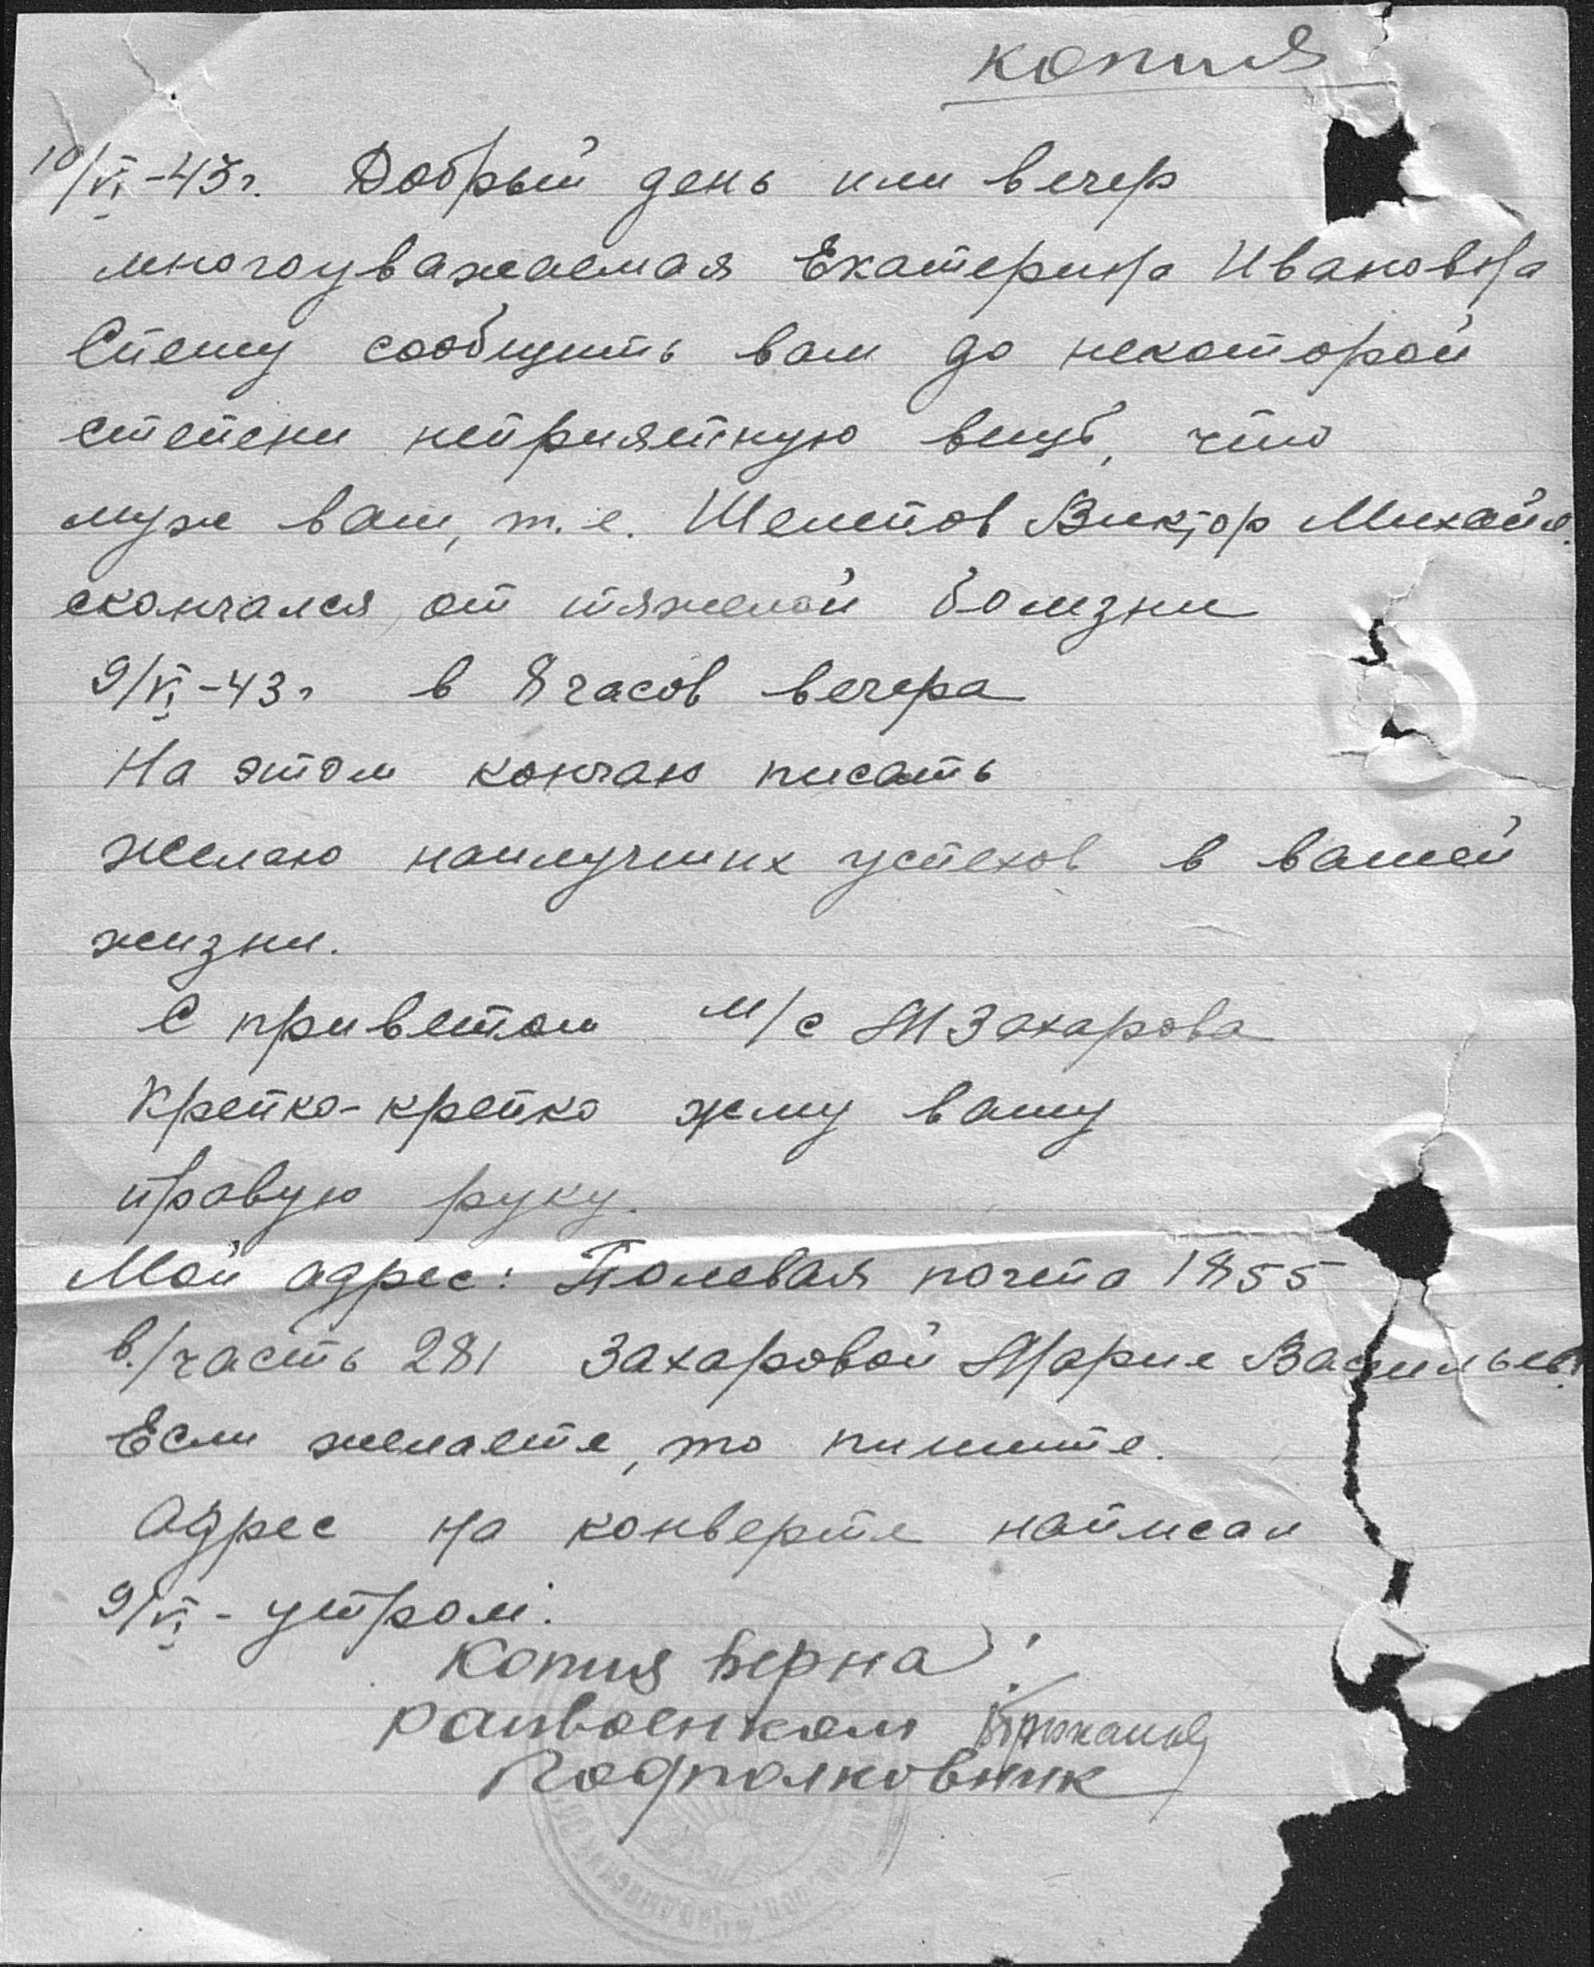 копия
10/VI-43г. Добрый день или вечер
многоуважаемая Екатерина Ивановна
Спешу сообщить вам до некоторой
степени неприятную вещь, что
муж ваш, т.е. Шелепов Виктор Михайл.
скончался от тяжелой болезни
9/VI-43г в 8 часов вечера
На этом кончаю писать
желаю наилучших успехов в вашей
жизни.
С приветом м/с М Захарова
Крепко-крепко жму вашу
правую руку.
Мой адрес: Полевая почта 1855
в./часть 281 Захаровой Марие Васильев.
Если желаете, то пишите.
Адрес на конверте написал
9/VI - утром.
Копия верна!
Райвоенком
Подполковник